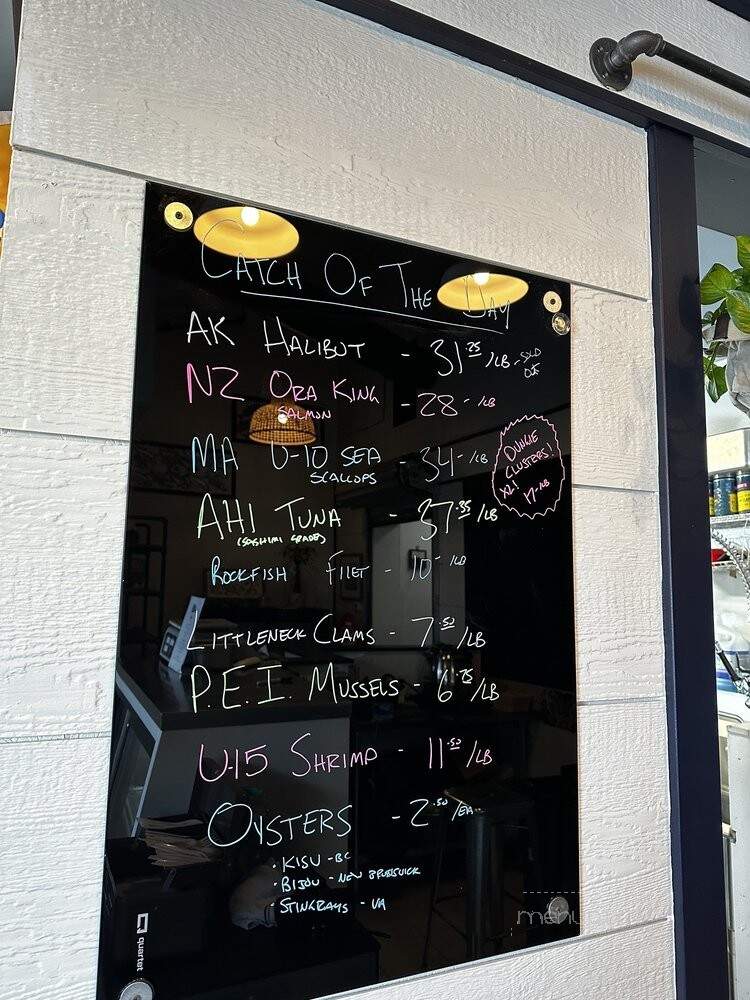 CATCH OF THE DAY
AK HALIBUT - 31.25/LB - SOLD OUT
NZ ORA KING - 28-/LB
SALMON
MA U-10 SEA - 34-/LB
SCALLOPS
DUNGIE
CLUSTERS!
XL!
17-/LB
AHI TUNA - 37.95/LB
(SASHIMI GRADE)
ROCKFISH FILET - 10-/LB
LITTLENECK CLAMS - 7.50/LB
P.E.I. MUSSELS - 6.75/LB
U-15 SHRIMP - 11.50/LB
OYSTERS - 2.50/EA
• KISU - BC
• BIJOU - NEW BRUNSWICK
• STINGRAYS - VA
quartet
menu